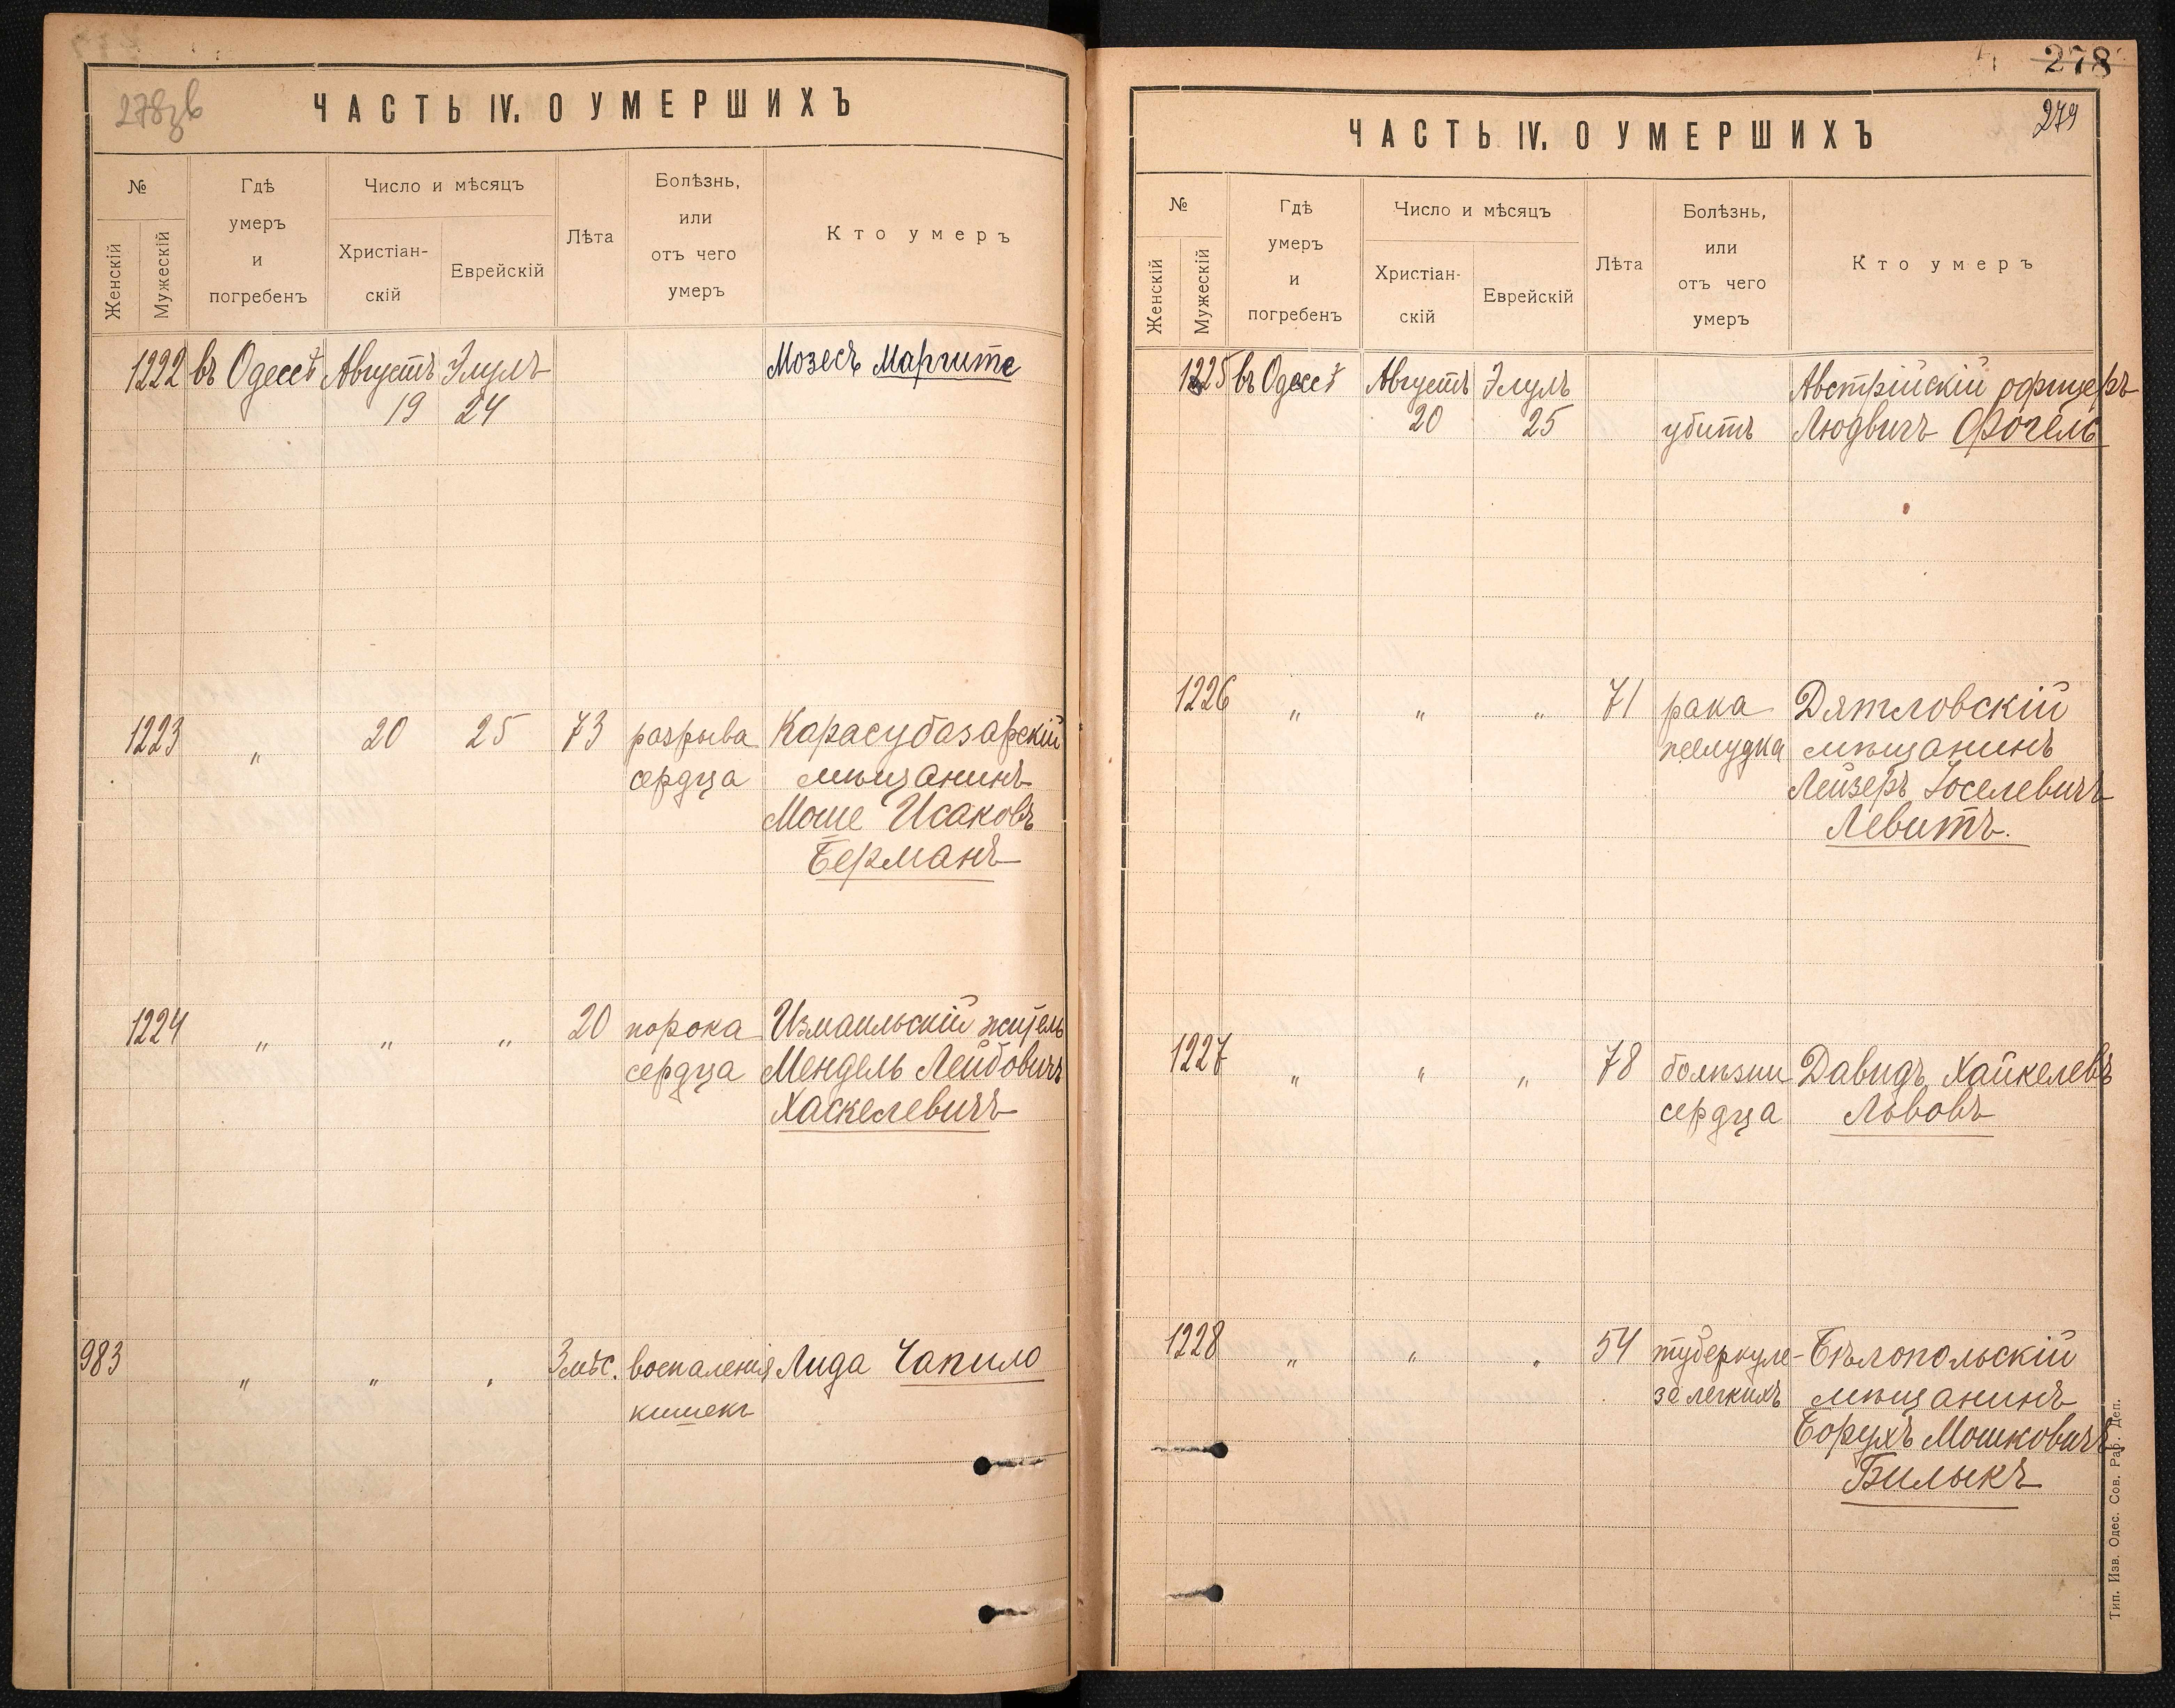 278зв
ЧАСТЬ IV. О УМЕРШИХЪ
№
Женскій
Мужескій
Гдѣ
умеръ
и
погребенъ
Число и мѣсяцъ
Христіан-
скій
Еврейскій
Лѣта
Болѣзнь,
или
отъ чего
умеръ
Кто умеръ
1222 въ Одессѣ Августъ Элулъ Мозесъ Маргите
19 24
1223 " 20 25 73 разрыва Карасубазарскій
сердца мѣщанинъ
Моше Исаковъ
Берманъ
1224 " " " 20 порока Измаильскій житель
сердца Мендель Лейбовичъ
Хаскелевичъ
983 " " " 3 мѣс. воспаленія Лида Чапило
кишекъ
278
279
ЧАСТЬ IV. О УМЕРШИХЪ
№
Женскій
Мужескій
Гдѣ
умеръ
и
погребенъ
Число и мѣсяцъ
Христіан-
скій
Еврейскій
Лѣта
Болѣзнь,
или
отъ чего
умеръ
Кто умеръ
1225 въ Одессѣ Августъ Элулъ Австрійскій офицеръ
20 25 убитъ Людвигъ Фогель
1226 " " " 71 рака Дятловскій
желудка мѣщанинъ
Лейзеръ Іоселевичъ
Левитъ.
1227 " " " 78 болѣзни Давидъ Хайкелевъ
сердца Львовъ
1228 " " " 54 туберкуле- Бѣлопольскій
за легкихъ мѣщанинъ
Борухъ Мошковичъ
Билыкъ
Тип. Изв. Одес. Сов. Раб. Деп.